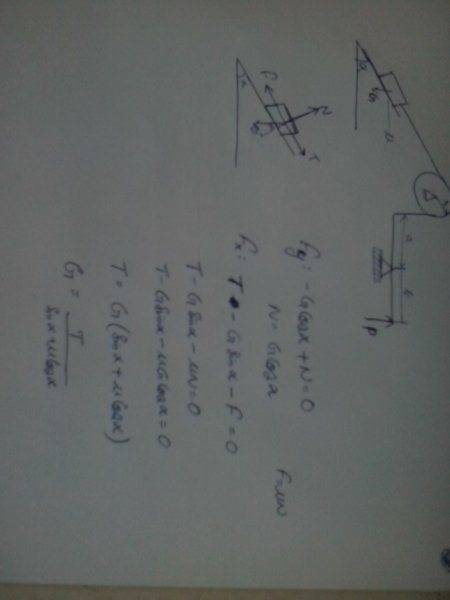 Fy: -G cosα + N = 0
N = G cosα
F = μN
Fx: T - G sinα - F = 0
T - G sinα - μN = 0
T - G sinα - μG cosα = 0
T = G(sinα + μ cosα)
G = T / sinα + μ cosα
α
G
μ
A
a
b
P
F
N
T
α
G